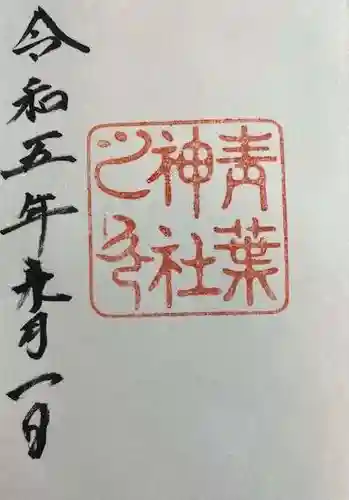 青葉
神社
之印
令和五年 月一日